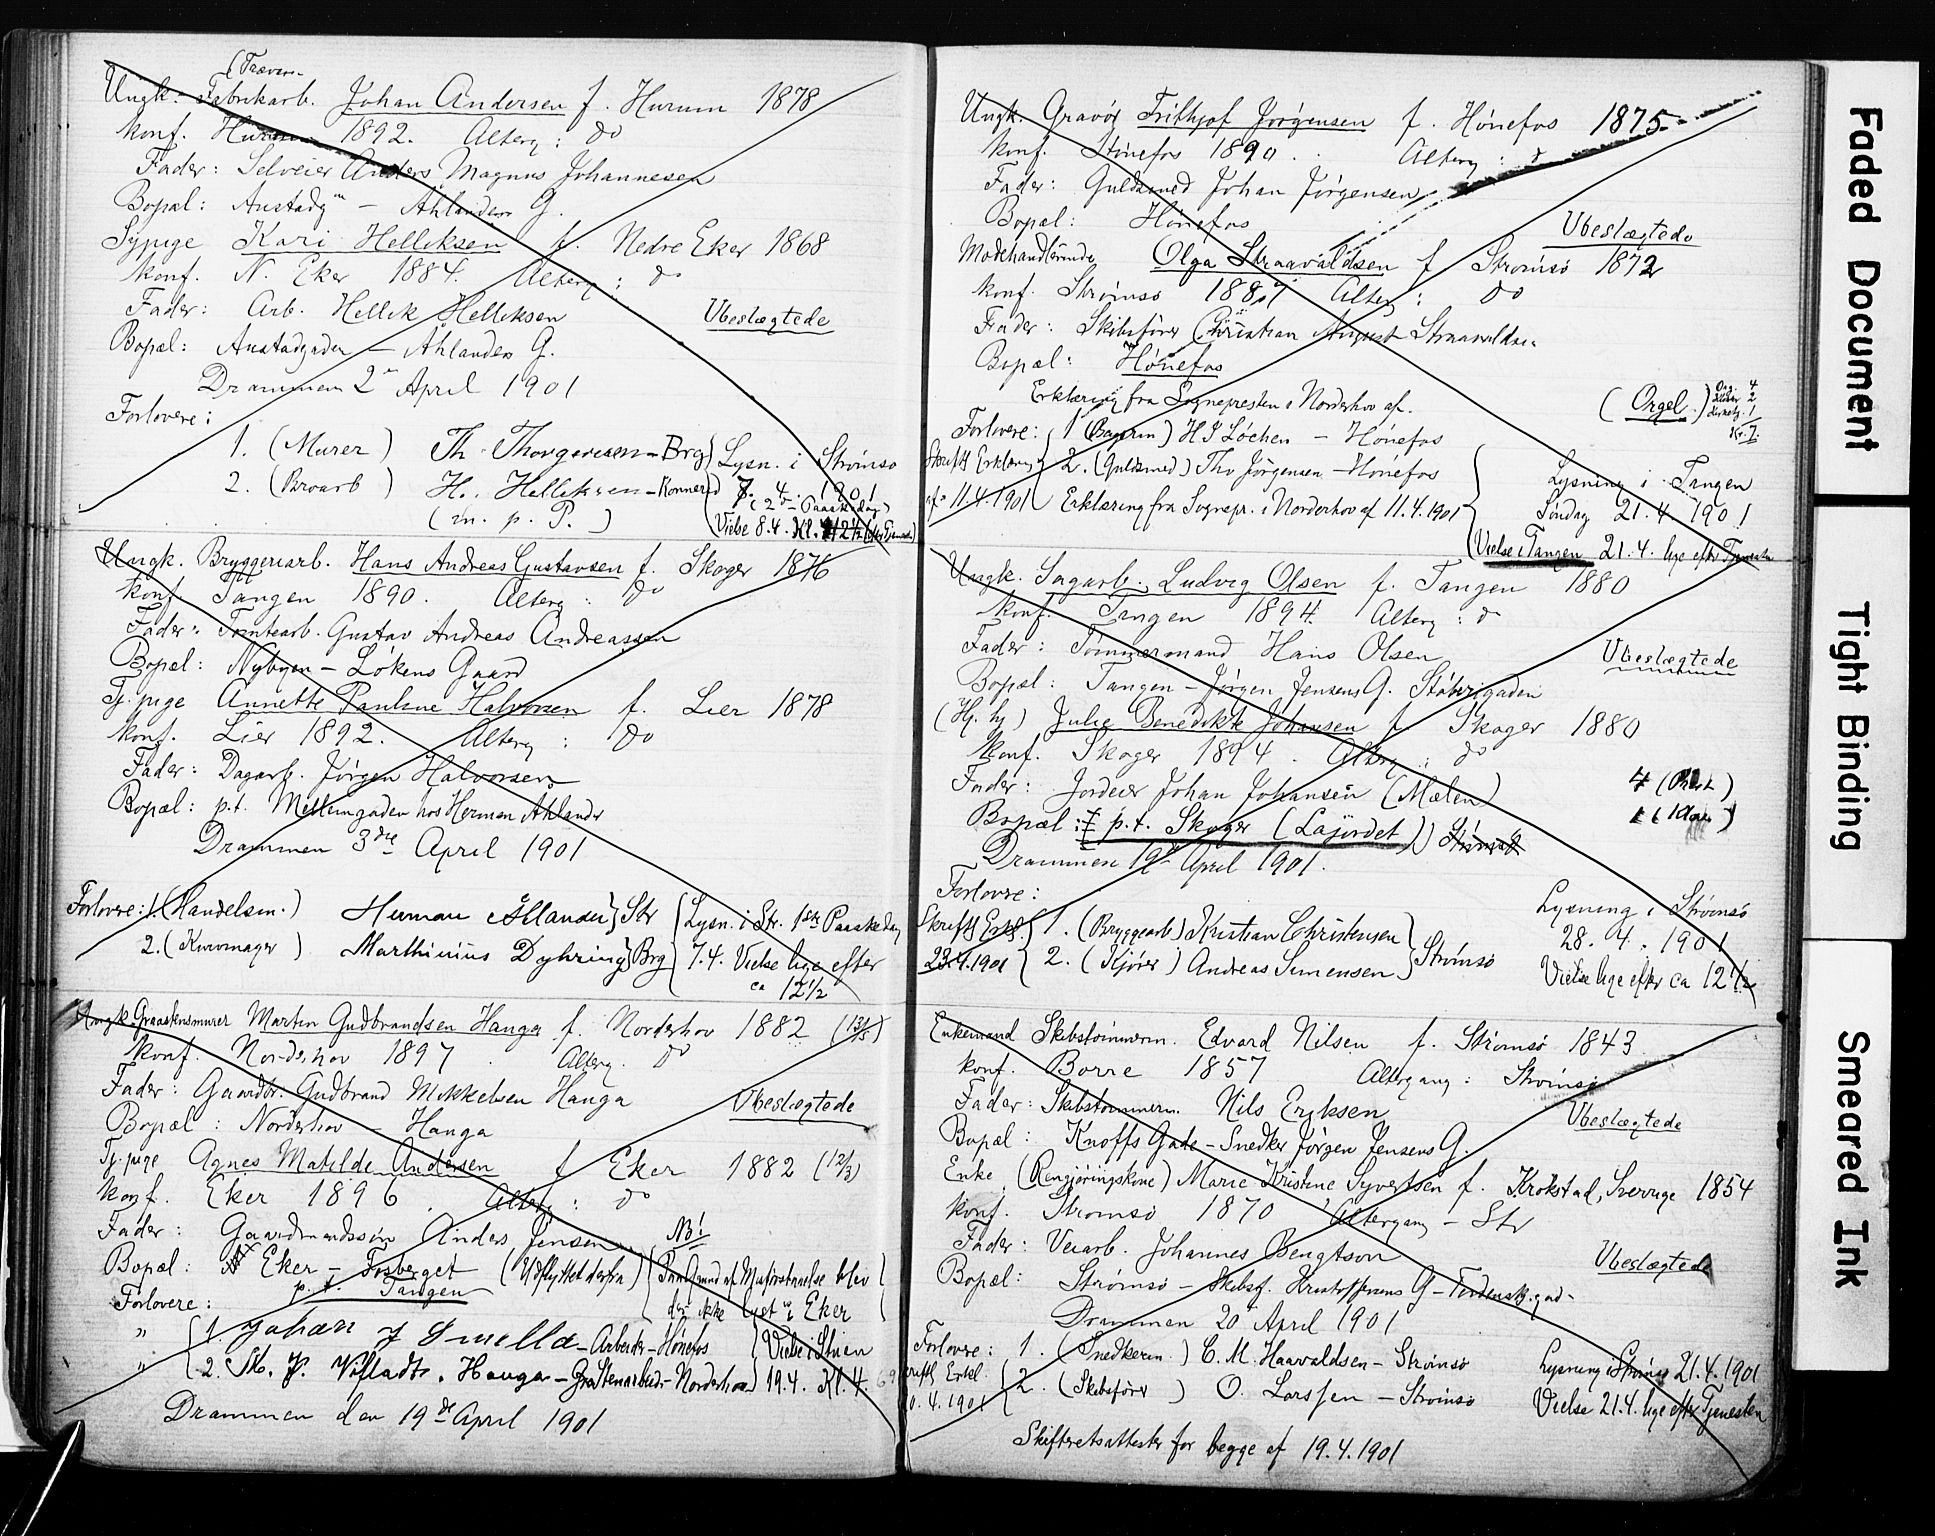 (Trævare-
Ungk. Fabrikarb. Johan Andersen f. Hurum 1878
konf. Hurum 1892. Alterg: do
Fader: Selveier Anders Magnus Johannesen
Bopæl: Austadg - Ahlanders G.
Sypige Kari Helliksen f. Nedre Eker 1868
konf. N. Eker 1884. Alterg: do
Fader: Arb. Hellik Helliksen
Ubeslægtede
Bopæl: Austadgaden - Ahlanders G.
Drammen 2 April 1901
Forlovere:
1. (Murer) Th. Thorgersen - Brg
2. (Broarb) H. Helliksen - Konnerud
(m. p. P.)
Lysn. i Strømsø
7. 4. 1901
(2 Paaskedag)
Vielse 8.4. Kl. 12½
Ungk. Bryggeriarb. Hans Andreas Gustavsen f. Skoger 1876
konf. Tangen 1890. Alterg: do
Fader: Tomtearb. Gustav Andreas Andreassen
Bopæl: Nybyen - Løkens Gaard
Tj. pige Annette Pauline Halvorsen f. Lier 1878
konf. Lier 1892. Alterg: do
Fader: Dagarb. Jørgen Halvorsen
Bopæl: p.t. Mellemgaden hos Herman Ahlander
Drammen 3die April 1901
Forlovere: 1. (Handelsm.) Herman Ahlander Str
2. (Kurvmager) Marthinius Dyhring Brg
Lysn. i Str. 1ste Paaskedag
7.4. Vielse lige efter
ca 12½
Ungk. Graastensmurer Martin Gudbrandsen Hanga f. Norderhov 1882 (13/5)
konf. Norderhov 1897 Alterg. do
Fader: Gaardbr. Gudbrand Mikkelsen Hanga
Ubeslægtede
Bopæl: Norderhov - Hanga
Tj. pige Agnes Matilde Andersen f Eker 1882 (12/3)
konf. Eker 1896. Alterg: do
Fader: Gaardmandssøn Anders Jensen
NB!
Bopæl: Eker - Fosberget (Udflyttet derfra)
p.t. Tangen
Paa Grund af Misforstaaelse blev
der ikke lyst i Eker
Forlovere:
" 1. Johan J Smella - Arbeider - Hønefos
" 2. M. P. Vifladt, Hanga - Gråstenarbeid. - Norderhov
Vielse i Stuen
19.4. Kl. 4.
Drammen den 19de April 1901
Ungk. Gravør Frithjof Jørgensen f. Hønefos 1875
konf. Hønefos 1890. Alterg: d
Fader: Guldsmed Johan Jørgensen
Bopæl: Hønefos
Ubeslægtede
Modehandlerinde Olga Straavaldsen f Strømsø 1872
konf. Strømsø 1887 Alterg: do
Fader: Skibsfører Christian August Straavaldsen
Bopæl: Hønefos
Erklæring fra Sognepresten i Norderhov af.
(Orgel.) Org. 4
2
1
Kr. 7.
Forlovere: 1 H J Løchen - Hønefos
2. (Guldsmed) Thv Jørgensen - Hønefos
Skriftl Erklæring
af 11.4.1901
Erklæring fra Sognepr. i Norderhov af 11.4.1901
Lysning i Tangen
Søndag 21.4.1901
Vielse i Tangen 21.4. lige efter Tjenesten
Ungk. Sagarb. Ludvig Olsen f. Tangen 1880
konf. Tangen 1894. Alterg: d
Fader: Tømmermand Hans Olsen
Ubeslægtede
Bopæl: Tangen - Jørgen Jensens G. Støberigaden
(Hj. hj) Julie Benedikte Johansen f Skoger 1880
konf. Skoger 1894. Alterg: do
Fader: Jordeier Johan Johansen (Mælen)
Bopæl: p.t. Skoger (Lajordet)
Drammen 19 April 1901.
Forlovere:
Skriftl Erkl.
23.4.1901
1. (Bryggearb) Kristian Christensen
2. (Kjører) Andreas Simensen
Strømsø
Lysning i Strømsø
28. 4. 1901
Vielse lige efter ca 12½
Enkemand Skibstømmerm. Edvard Nilsen f. Strømsø 1843
konf. Borre 1857 Altergang: Strømsø
Fader: Skibstømmerm. Nils Eriksen
Ubeslægtede
Bopæl: Knoffs Gade - Snedker Jørgen Jensens G.
Enke (Rengjøringskone) Marie Kristine Syvertsen f. Krokstad, Sverrige 1854
konf. Strømsø 1870 Altergang - Str
Fader: Veiarb. Johannes Bengtson
Ubeslægtede
Bopæl: Strømsø - Skibsf. Kristoffersens G - Tordenskj.gad-
Drammen 20 April 1901
Forlovere: 1. (Snedkerm.) C. M. Haavaldsen - Strømsø
2. (Skibsfører) O. Larssen - Strømsø
Lysning i Strømsø 21.4.1901
Vielse 21.4. lige efter Tjenesten
Skifteretsattester for begge af 19.4.1901
Faded Document
Tight Binding
Smeared Ink